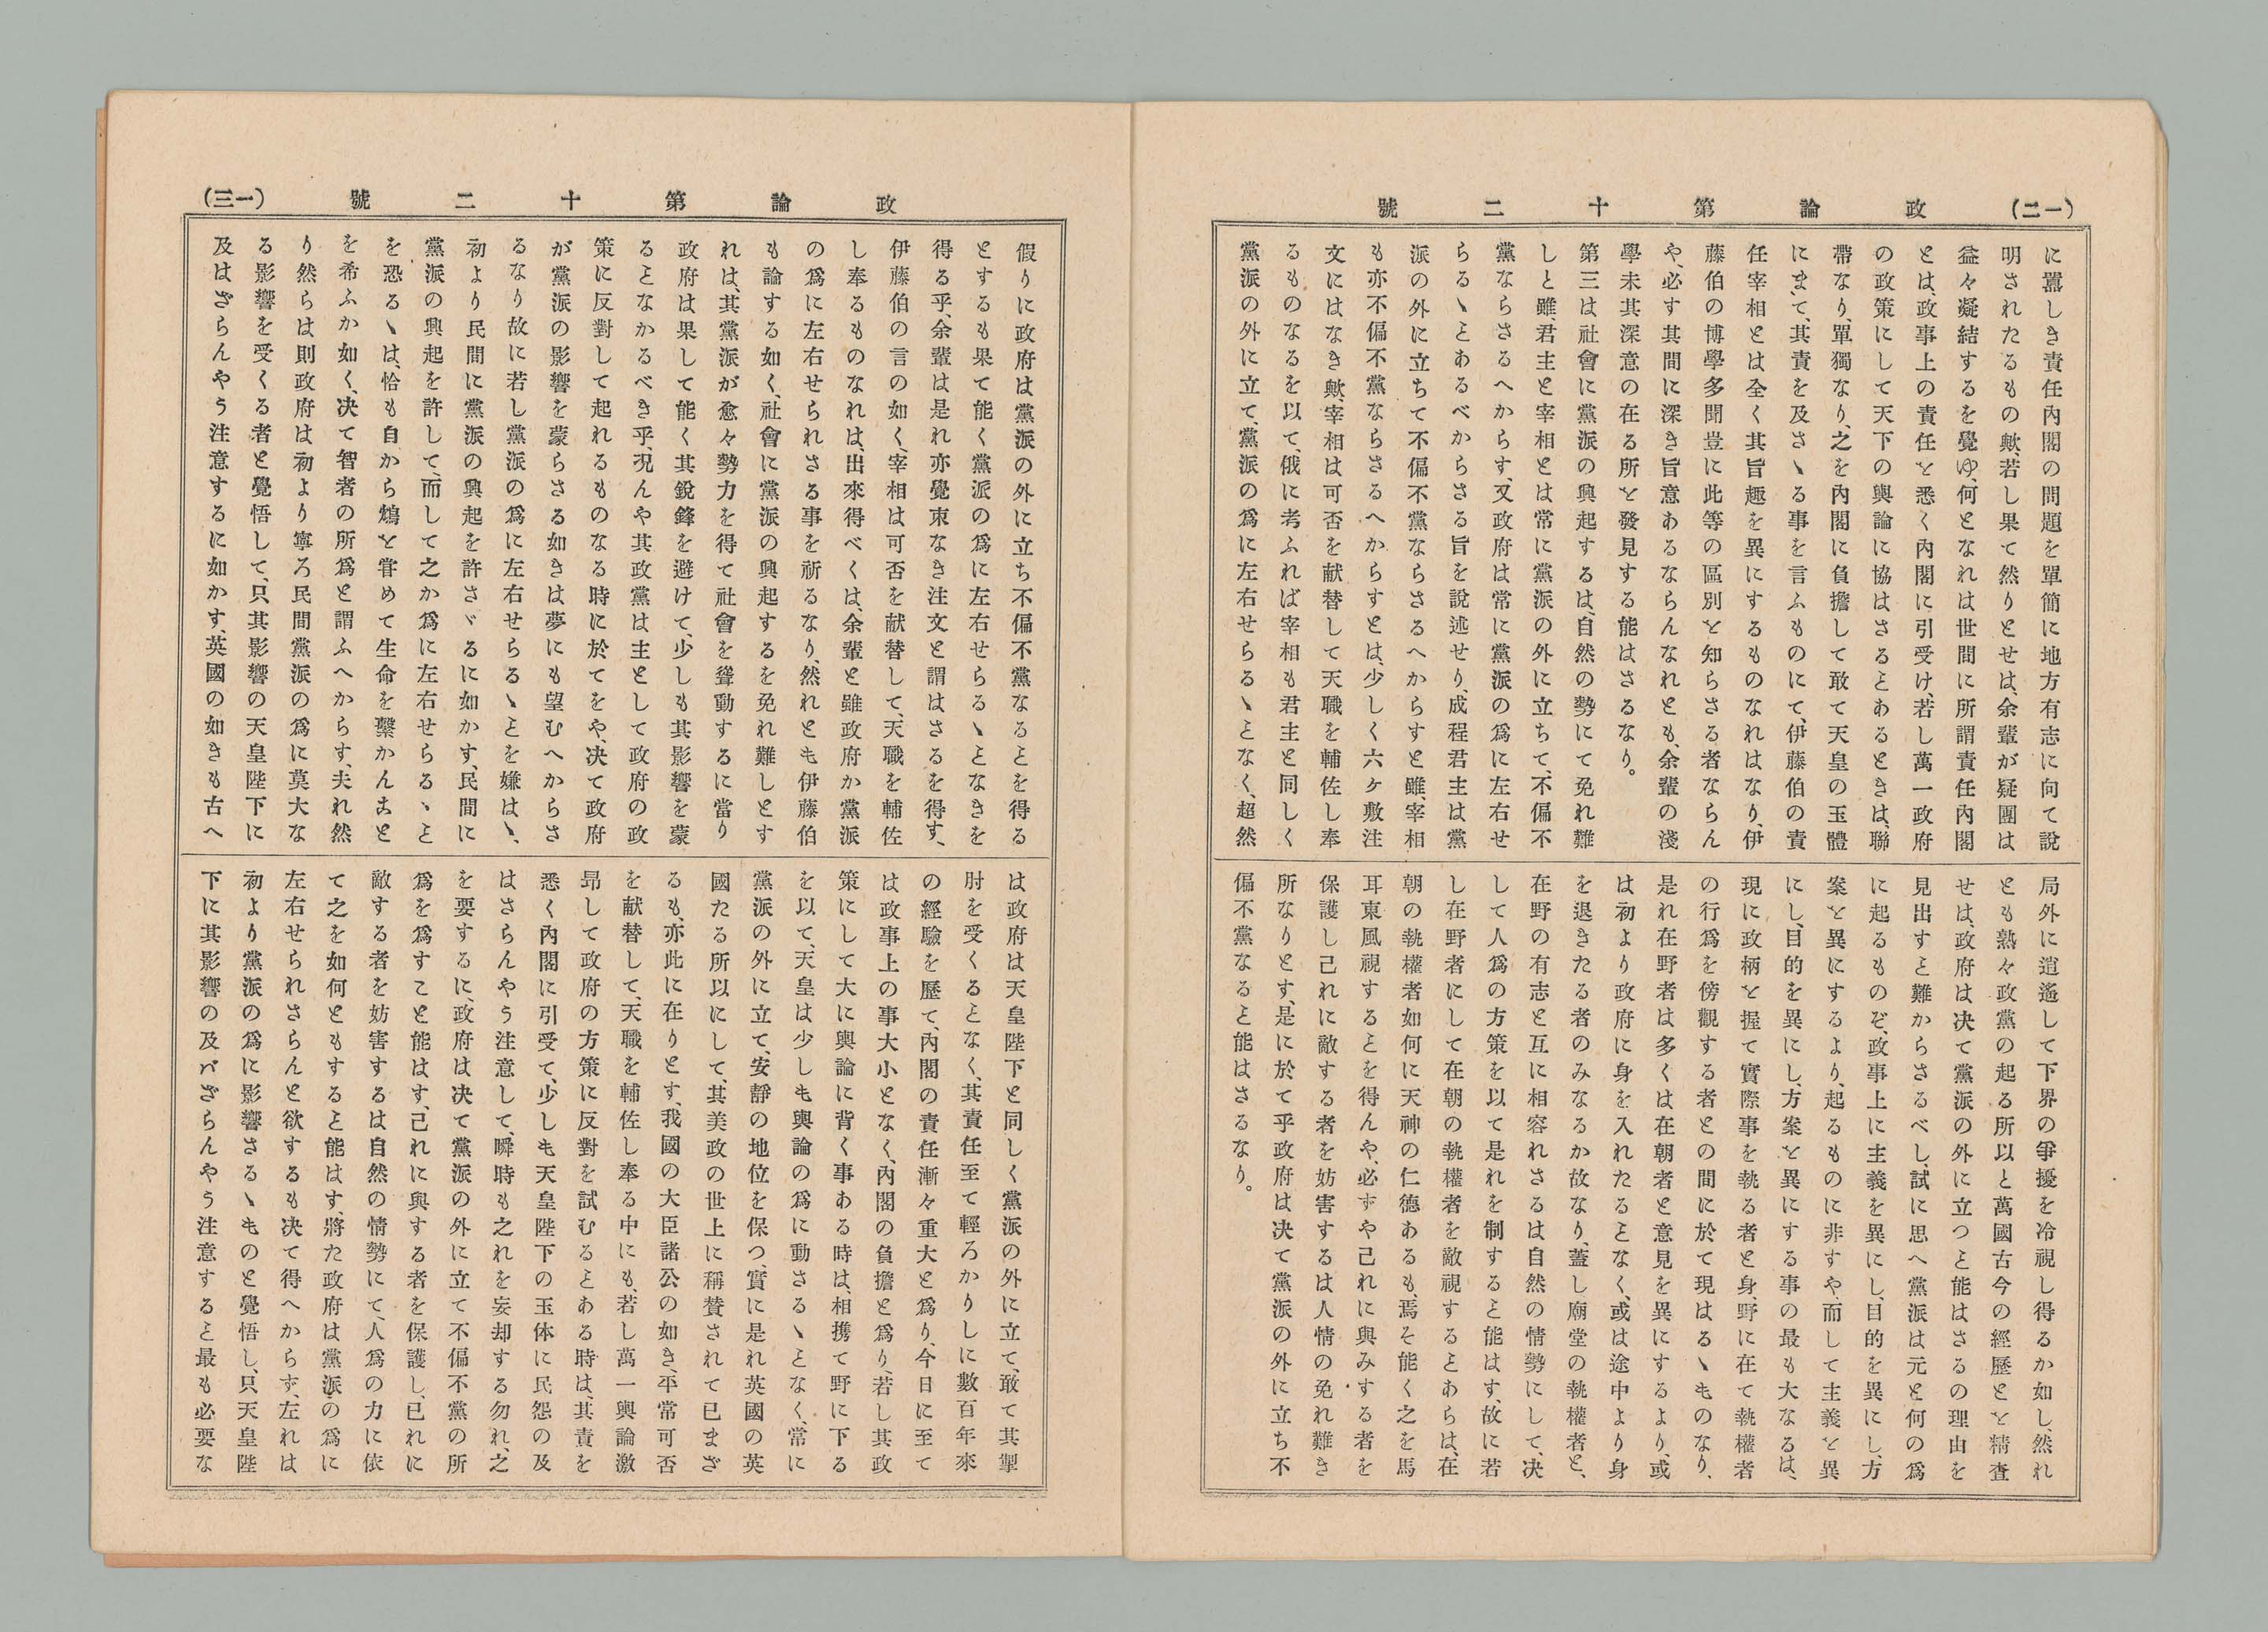 (一二) 政論第十二號
に囂しき責任內閣の問題を單簡に地方有志に向て說
明されたるもの歟、若し果て然りとせは、余輩が疑團は
益々凝結するを覺ゆ、何となれは世間に所謂責任內閣
とは、政事上の責任を悉く內閣に引受け、若し萬一政府
の政策にして天下の輿論に協はさるヿあるときは、聯
帶なり、單獨なり、之を內閣に負擔して敢て天皇の玉體
にまて、其責を及さゝる事を言ふものにて、伊藤伯の責
任宰相とは全く其旨趣を異にするものなれはなり、伊
藤伯の博學多聞豈に此等の區別を知らさる者ならん
や、必す其間に深き旨意あるならんなれとも、余輩の淺
學未其深意の在る所を發見する能はさるなり。
第三は社會に黨派の興起するは、自然の勢にて免れ難
しと雖、君主と宰相とは常に黨派の外に立ちて、不偏不
黨ならさるへからす、又政府は常に黨派の爲に左右せ
らるゝヿあるべからさる旨を說述せり、成程君主は黨
派の外に立ちて不偏不黨ならさるへからすと雖、宰相
も亦不偏不黨ならさるへからすとは、少しく六ヶ敷注
文にはなき歟、宰相は可否を献替して天職を輔佐し奉
るものなるを以て、俄に考ふれば宰相も君主と同しく
黨派の外に立て、黨派の爲に左右せらるゝヿなく、超然
局外に逍遙して下界の爭擾を冷視し得るか如し、然れ
とも熟々政黨の起る所以と萬國古今の經歷とを精査
せは、政府は决て黨派の外に立つヿ能はさるの理由を
見出すヿ難からさるべし、試に思へ黨派は元と何の爲
に起るものぞ、政事上に主義を異にし、目的を異にし、方
案を異にするより、起るものに非すや、而して主義を異
にし、目的を異にし、方案を異にする事の最も大なるは、
現に政柄を握て實際事を執る者と身野に在て執權者
の行爲を傍觀する者との間に於て現はるゝものなり、
是れ在野者は多くは在朝者と意見を異にするより、或
は初より政府に身を入れたるヿなく、或は途中より身
を退きたる者のみなるか故なり、蓋し廟堂の執權者と、
在野の有志と互に相容れさるは自然の情勢にして、决
して人爲の方策を以て是れを制するヿ能はす、故に若
し在野者にして在朝の執權者を敵視するヿあらは、在
朝の執權者如何に天神の仁德あるも、焉そ能く之を馬
耳東風視するヿを得んや、必すや己れに與みする者を
保護し己れに敵する者を妨害するは人情の免れ難き
所なりとす、是に於て乎政府は决て黨派の外に立ち不
偏不黨なるヿ能はさるなり。
政論第十二號 (一三)
假りに政府は黨派の外に立ち不偏不黨なるヿを得る
とするも果て能く黨派の爲に左右せらるゝヿなきを
得る乎、余輩は是れ亦覺束なき注文と謂はさるを得す、
伊藤伯の言の如く、宰相は可否を献替して、天職を輔佐
し奉るものなれは、出來得べくは、余輩と雖政府か黨派
の爲に左右せられさる事を祈るなり、然れとも伊藤伯
も論する如く、社會に黨派の興起するを免れ難しとす
れは、其黨派が愈々勢力を得て社會を聳動するに當り
政府は果して能く其銳鋒を避けて、少しも其影響を蒙
るヿなかるべき乎、况んや其政黨は主として政府の政
策に反對して起れるものなる時に於てをや、决て政府
が黨派の影響を蒙らさる如きは夢にも望むへからさ
るなり故に若し黨派の爲に左右せらるゝヿを嫌はゝ、
初より民間に黨派の興起を許さゞるに如かす、民間に
黨派の興起を許して、而して之か爲に左右せらるゝヿ
を恐るゝは、恰も自から鴆を甞めて生命を繫かんヿと
を希ふか如く、决て智者の所爲と謂ふへからす、夫れ然
り然らは則政府は初より寧ろ民間黨派の爲に莫大な
る影響を受くる者と覺悟して、只其影響の天皇陛下に
及はざらんやう注意するに如かす、英國の如きも古へ
は政府は天皇陛下と同しく黨派の外に立て、敢て其掣
肘を受くるヿなく、其責任至て輕ろかりしに數百年來
の經驗を歷て、內閣の責任漸々重大と爲り、今日に至て
は政事上の事大小となく、內閣の負擔と爲り、若し其政
策にして大に輿論に背く事ある時は、相携て野に下る
を以て、天皇は少しも輿論の爲に動さるゝヿなく、常に
黨派の外に立て、安靜の地位を保つ、實に是れ英國の英
國たる所以にして、其美政の世上に稱賛されて已まざ
るも、亦此に在りとす、我國の大臣諸公の如き、平常可否
を献替して、天職を輔佐し奉る中にも、若し萬一輿論激
昂して政府の方策に反對を試むるヿある時は、其責を
悉く內閣に引受て、少しも天皇陛下の玉体に民怨の及
はさらんやう注意して、瞬時も之れを妄却する勿れ、之
を要するに、政府は决て黨派の外に立て不偏不黨の所
爲を爲すこと能はす、己れに與する者を保護し、已れに
敵する者を妨害するは自然の情勢にて、人爲の力に依
て之を如何ともするヿ能はす、將た政府は黨派の爲に
左右せられさらんと欲するも决て得へからす、左れは
初より黨派の爲に影響さるゝものと覺悟し、只天皇陛
下に其影響の及バざらんやう注意するヿ最も必要な